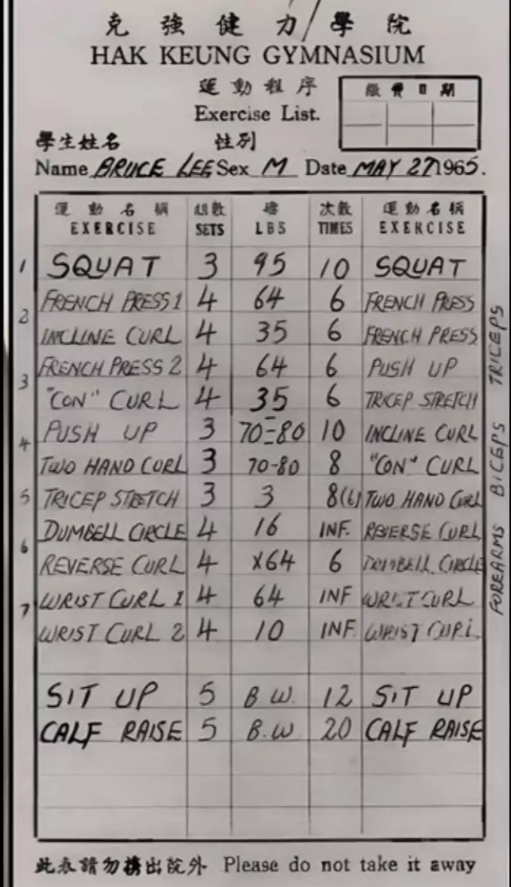 克強健力學院
HAK KEUNG GYMNASIUM
運動程序
Exercise List.
繳費日期
學生姓名 性別
Name BRUCE LEE Sex M Date MAY 27 1965.
運動名稱 組數 磅 次數 運動名稱
EXERCISE SETS LBS TIMES EXERCISE
1 SQUAT 3 95 10 SQUAT
2 FRENCH PRESS 1 4 64 6 FRENCH PRESS
INCLINE CURL 4 35 6 FRENCH PRESS
3 FRENCH PRESS 2 4 64 6 PUSH UP
"CON" CURL 4 35 6 TRICEP STRETCH
4 PUSH UP 3 70-80 10 INCLINE CURL
TWO HAND CURL 3 70-80 8 "CON" CURL
5 TRICEP STRETCH 3 3 8(6) TWO HAND CURL
DUMBELL CIRCLE 4 16 INF. REVERSE CURL
6 REVERSE CURL 4 x64 6 DUMBELL CIRCLE
7 WRIST CURL 1 4 64 INF WRIST CURL
WRIST CURL 2 4 10 INF. WRIST CURL
SIT UP 5 B.W. 12 SIT UP
CALF RAISE 5 B.W 20 CALF RAISE
FOREARMS BICEPS TRICEPS
請勿攜出院外 Please do not take it away